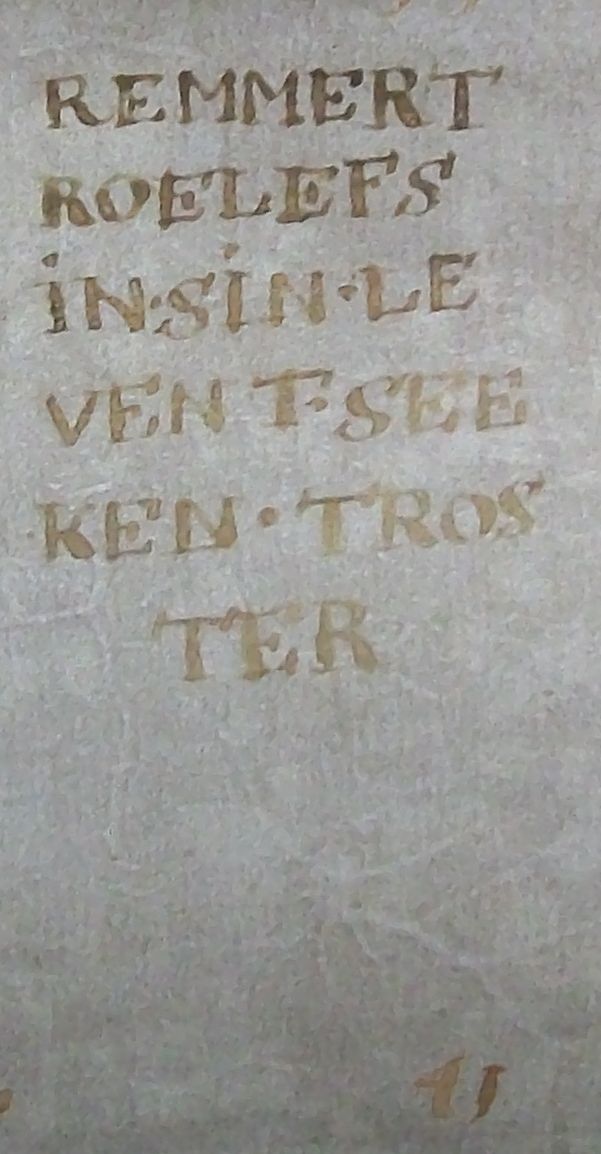 REMMERT
ROELEFS
İN·SİN·LE
VENT·SEE
KEN·TROS
TER
41